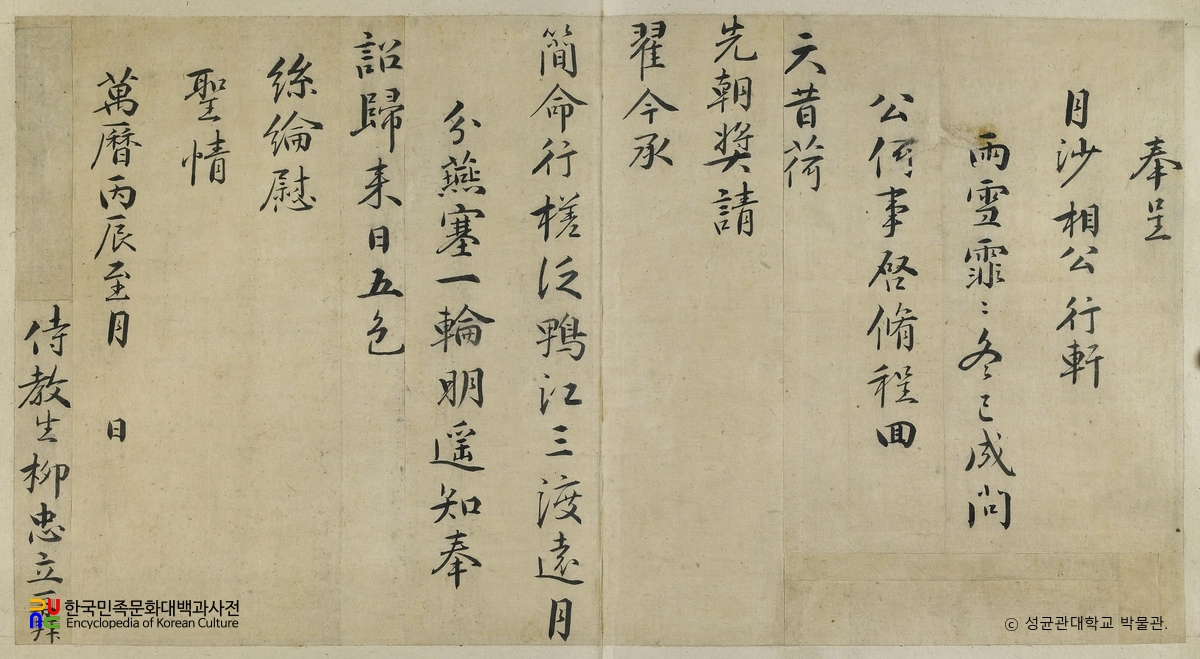 奉呈
月沙相公行軒
雨雪霏〻冬已成問
公何事啓脩程回
天昔荷
先朝奬請
翟今承
簡命行槎泛鴨江三渡遠月
分燕塞一輪明遥知奉
詔歸来日五色
絲綸慰
聖情
萬曆丙辰至月 日
侍教生柳忠立再拜
한국민족문화대백과사전
Encyclopedia of Korean Culture
ⓒ 성균관대학교 박물관.